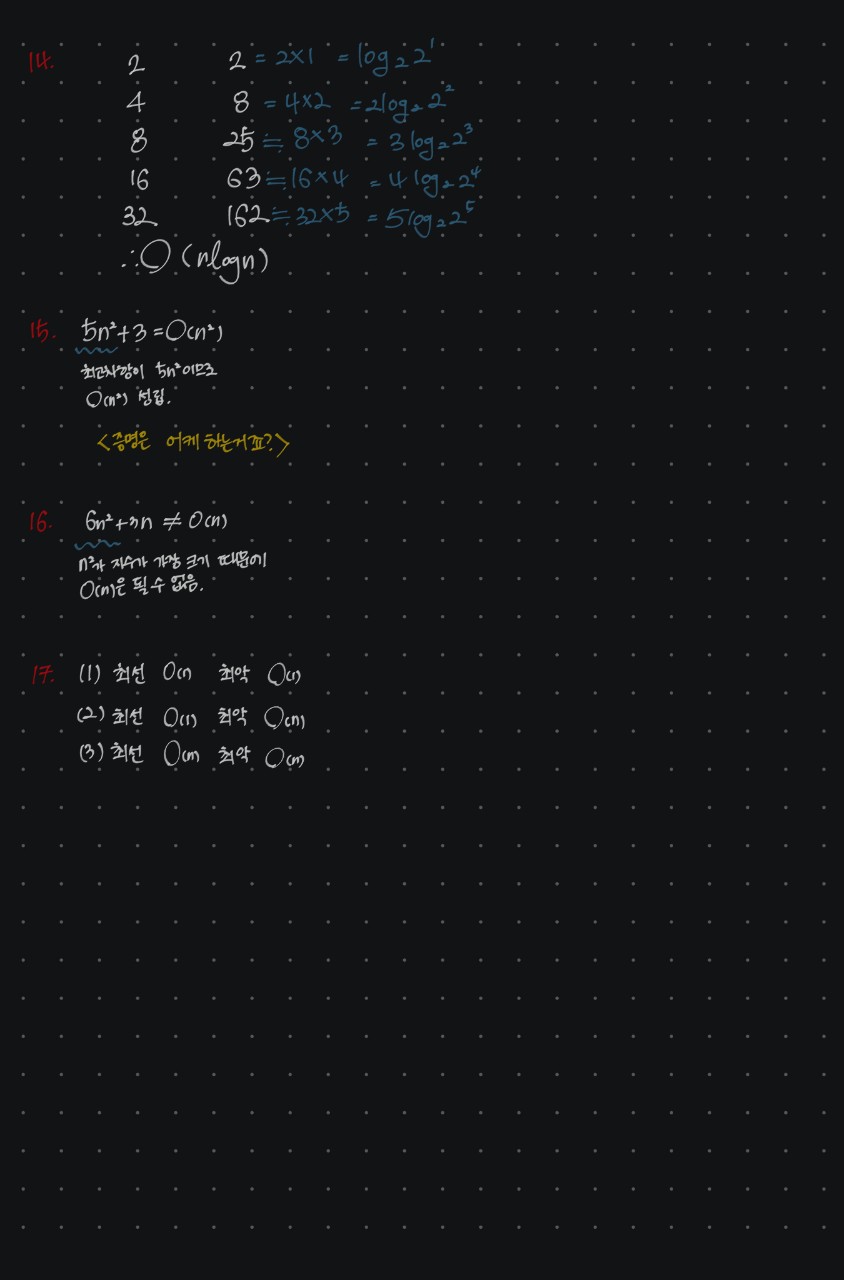 14. 2 2 = 2×1 = log₂2¹
4 8 = 4×2 = 2log₂2²
8 25 ≒ 8×3 = 3log₂2³
16 63 ≒ 16×4 = 4log₂2⁴
32 162 ≒ 32×5 = 5log₂2⁵
∴ O(nlogn)
15. 5n²+3 = O(n²)
최고차항이 5n²이므로
O(n²) 성립.
<증명은 어케 하는거죠?>
16. 6n²+3n ≠ O(n)
n²가 지수가 가장 크기 때문에
O(n)은 될 수 없음.
17. (1) 최선 O(1) 최악 O(1)
(2) 최선 O(1) 최악 O(n)
(3) 최선 O(n) 최악 O(n)